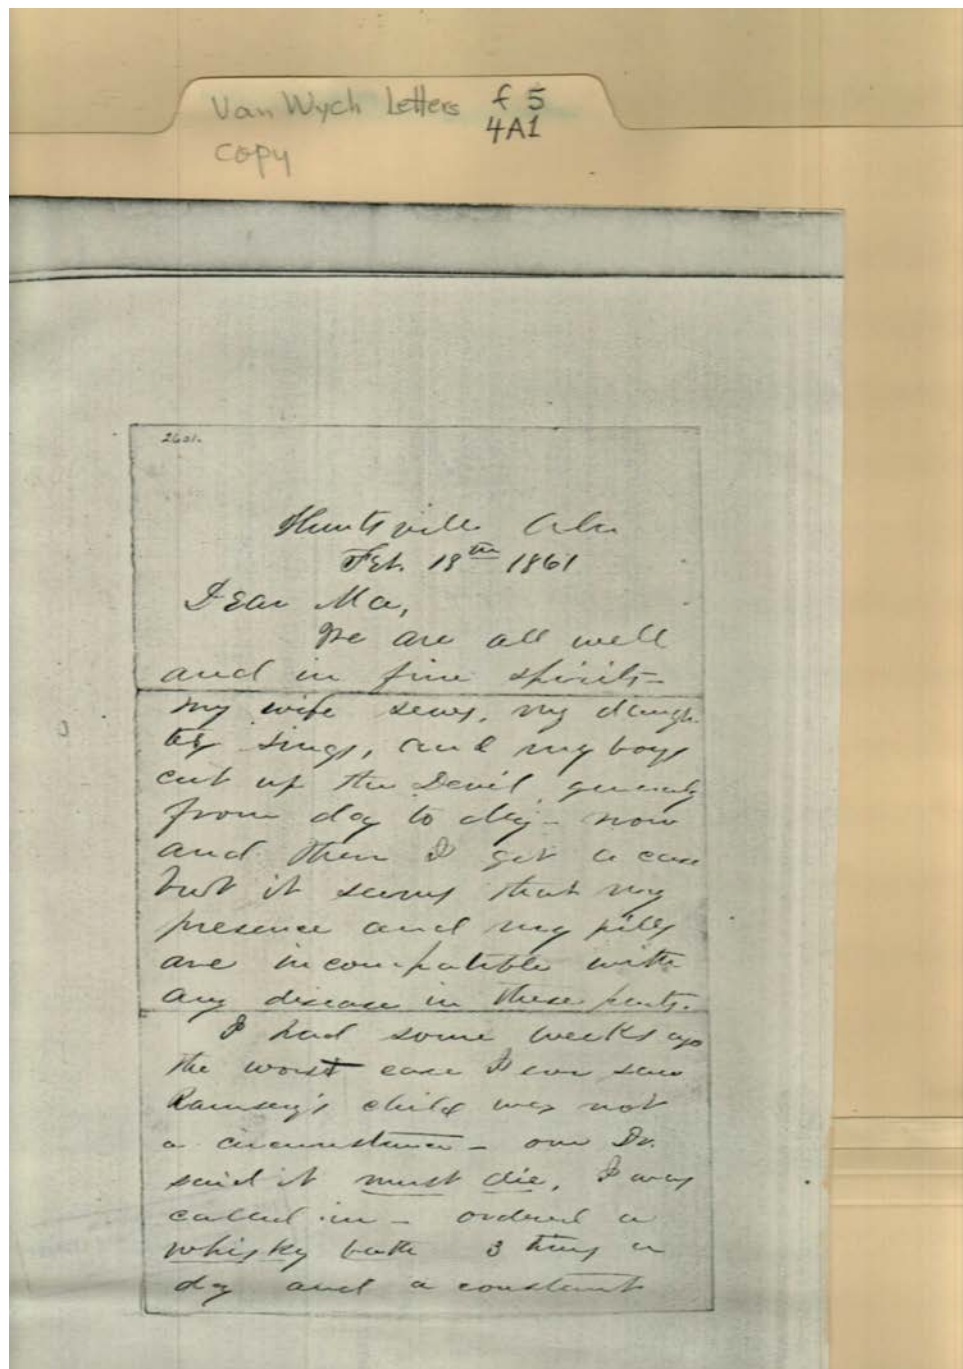 Van Wych Letters f 5
4A1
copy
2601.
Huntsville Ala
Feb. 18th 1861
Dear Ma,
We are all well
and in fine spirits -
my wife sews, my daugh
ter sings, and my boys
cut up the Devil generally
from day to day - now
and then I get a case
but it seems that my
presence and my pills
are incompatible with
any disease in these parts.
I had some weeks ago
the worst case I ever saw
Ramsey's child was not
a circumstance - one Dr.
said it must die, I was
called in - ordered a
whisky bath 3 times a
day and a constant